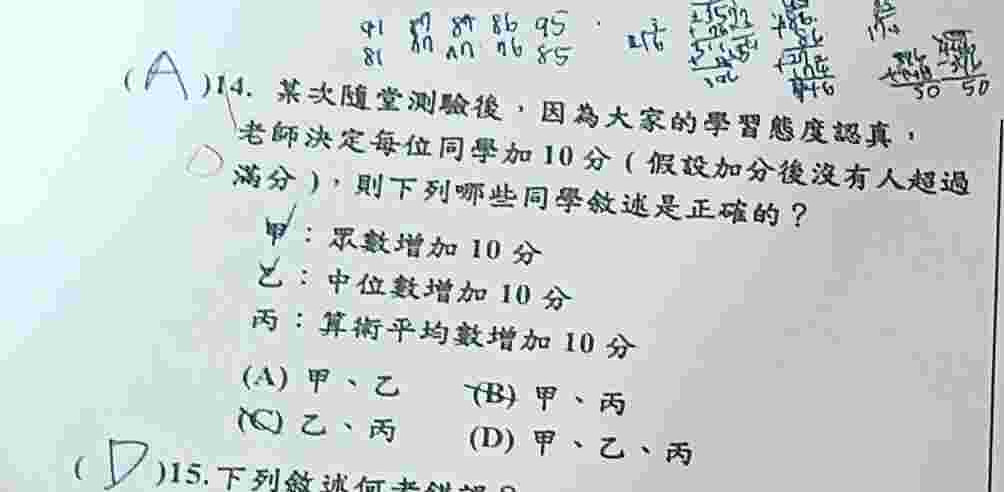 91 87 89 86 95
81 85
(A)14. 某次隨堂測驗後，因為大家的學習態度認真，
老師決定每位同學加 10 分(假設加分後沒有人超過
滿分)，則下列哪些同學敘述是正確的？
甲：眾數增加 10 分
乙：中位數增加 10 分
丙：算術平均數增加 10 分
(A) 甲、乙 (B) 甲、丙
(C) 乙、丙 (D) 甲、乙、丙
(D)15.下列敘述何者錯誤？